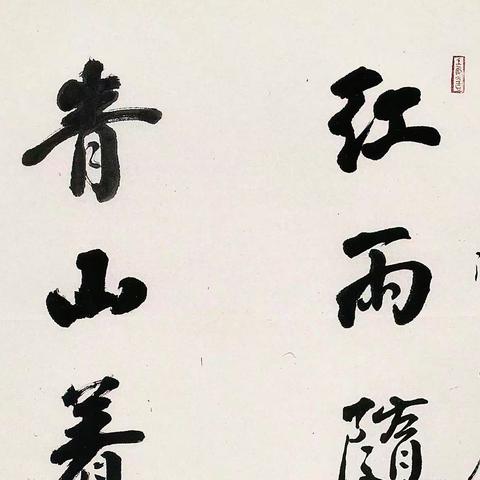 红雨随
青山着